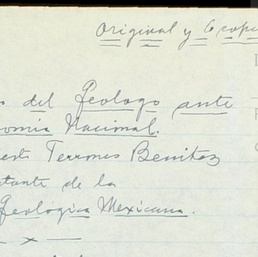 Original y 6 copias
del Geologo ante
Nacional.
Terrones Benitez
de la
Geológica Mexicana.
x